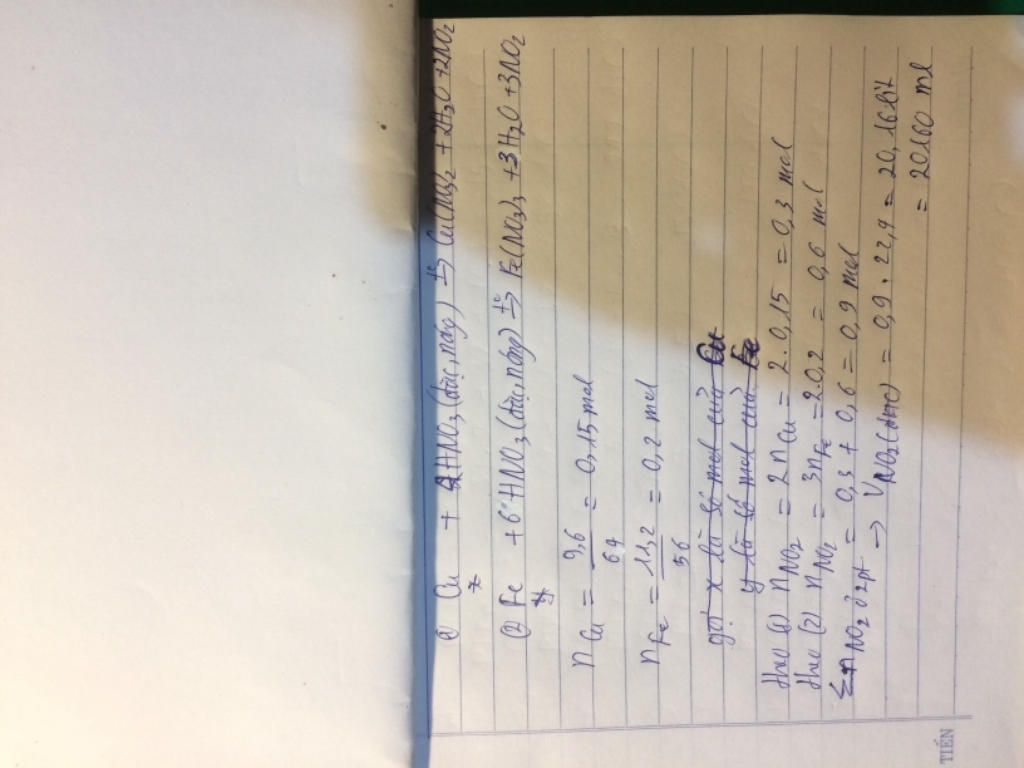 ① Cu + 4HNO3 (đặc, nóng) t°→ Cu(NO3)2 + 2H2O + 2NO2
x
② Fe + 6HNO3 (đặc, nóng) t°→ Fe(NO3)3 + 3H2O + 3NO2
y
nCu = 9,6/64 = 0,15 mol
nFe = 11,2/56 = 0,2 mol
gọi x là số mol của Cu
y là số mol của Fe
Theo (1) nNO2 = 2nCu = 2.0,15 = 0,3 mol
Theo (2) nNO2 = 3nFe = 2.0,2 = 0,6 mol
ΣnNO2 ở 2pt = 0,3 + 0,6 = 0,9 mol
→ VNO2(đktc) = 0,9 . 22,4 = 20,16 lít
= 20160 ml
TIẾN